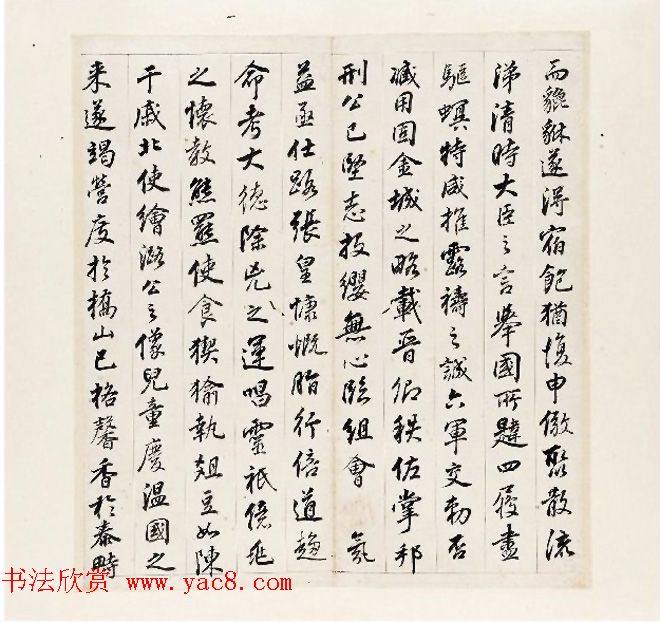 而貔貅遂得宿飽猶復申儆聚散流
涕清時大臣之言舉國所韙四履盡
驅螟特咸推露禱之誠六軍交勑否
臧用固金城之略載晉卿秩佐掌邦
刑公已堅志投纓無心臨組會 氣
益亟仕路張皇慷慨脂行倍道趨
命考大德除兇之運唱靈祇億兆
之懷教熊羆使食猰㺄執俎豆如陳
干戚北使繪潞公之像兒童慶溫國之
來遂竭營度於橋山已格馨香於泰畤
书法欣赏 www.yac8.com